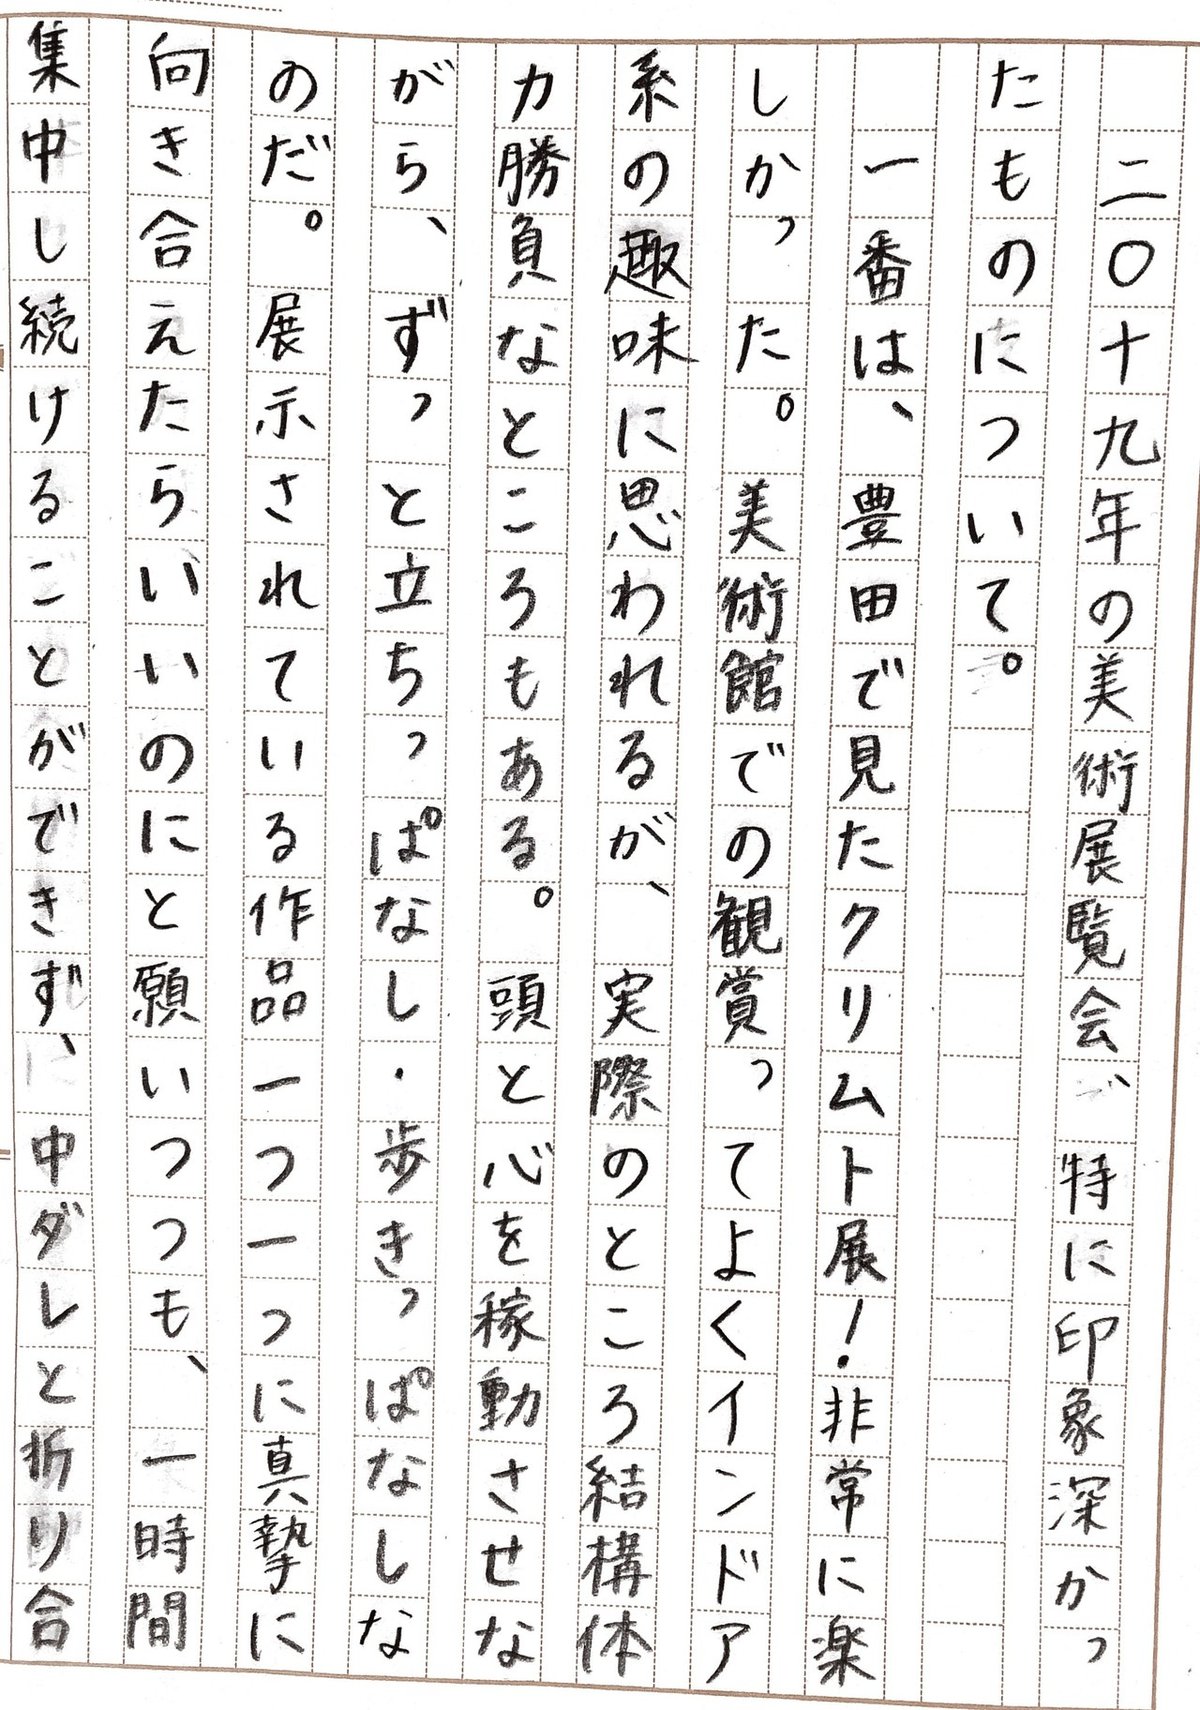 二〇十九年の美術展覧会、特に印象深かっ
たものについて。
一番は、豊田で見たクリムト展！非常に楽
しかった。美術館での観賞ってよくインドア
系の趣味に思われるが、実際のところ結構体
力勝負なところもある。頭と心を稼動させな
がら、ずっと立ちっぱなし・歩きっぱなしな
のだ。展示されている作品一つ一つに真摯に
向き合えたらいいのにと願いつつも、一時間
集中し続けることができず、中ダレと折り合